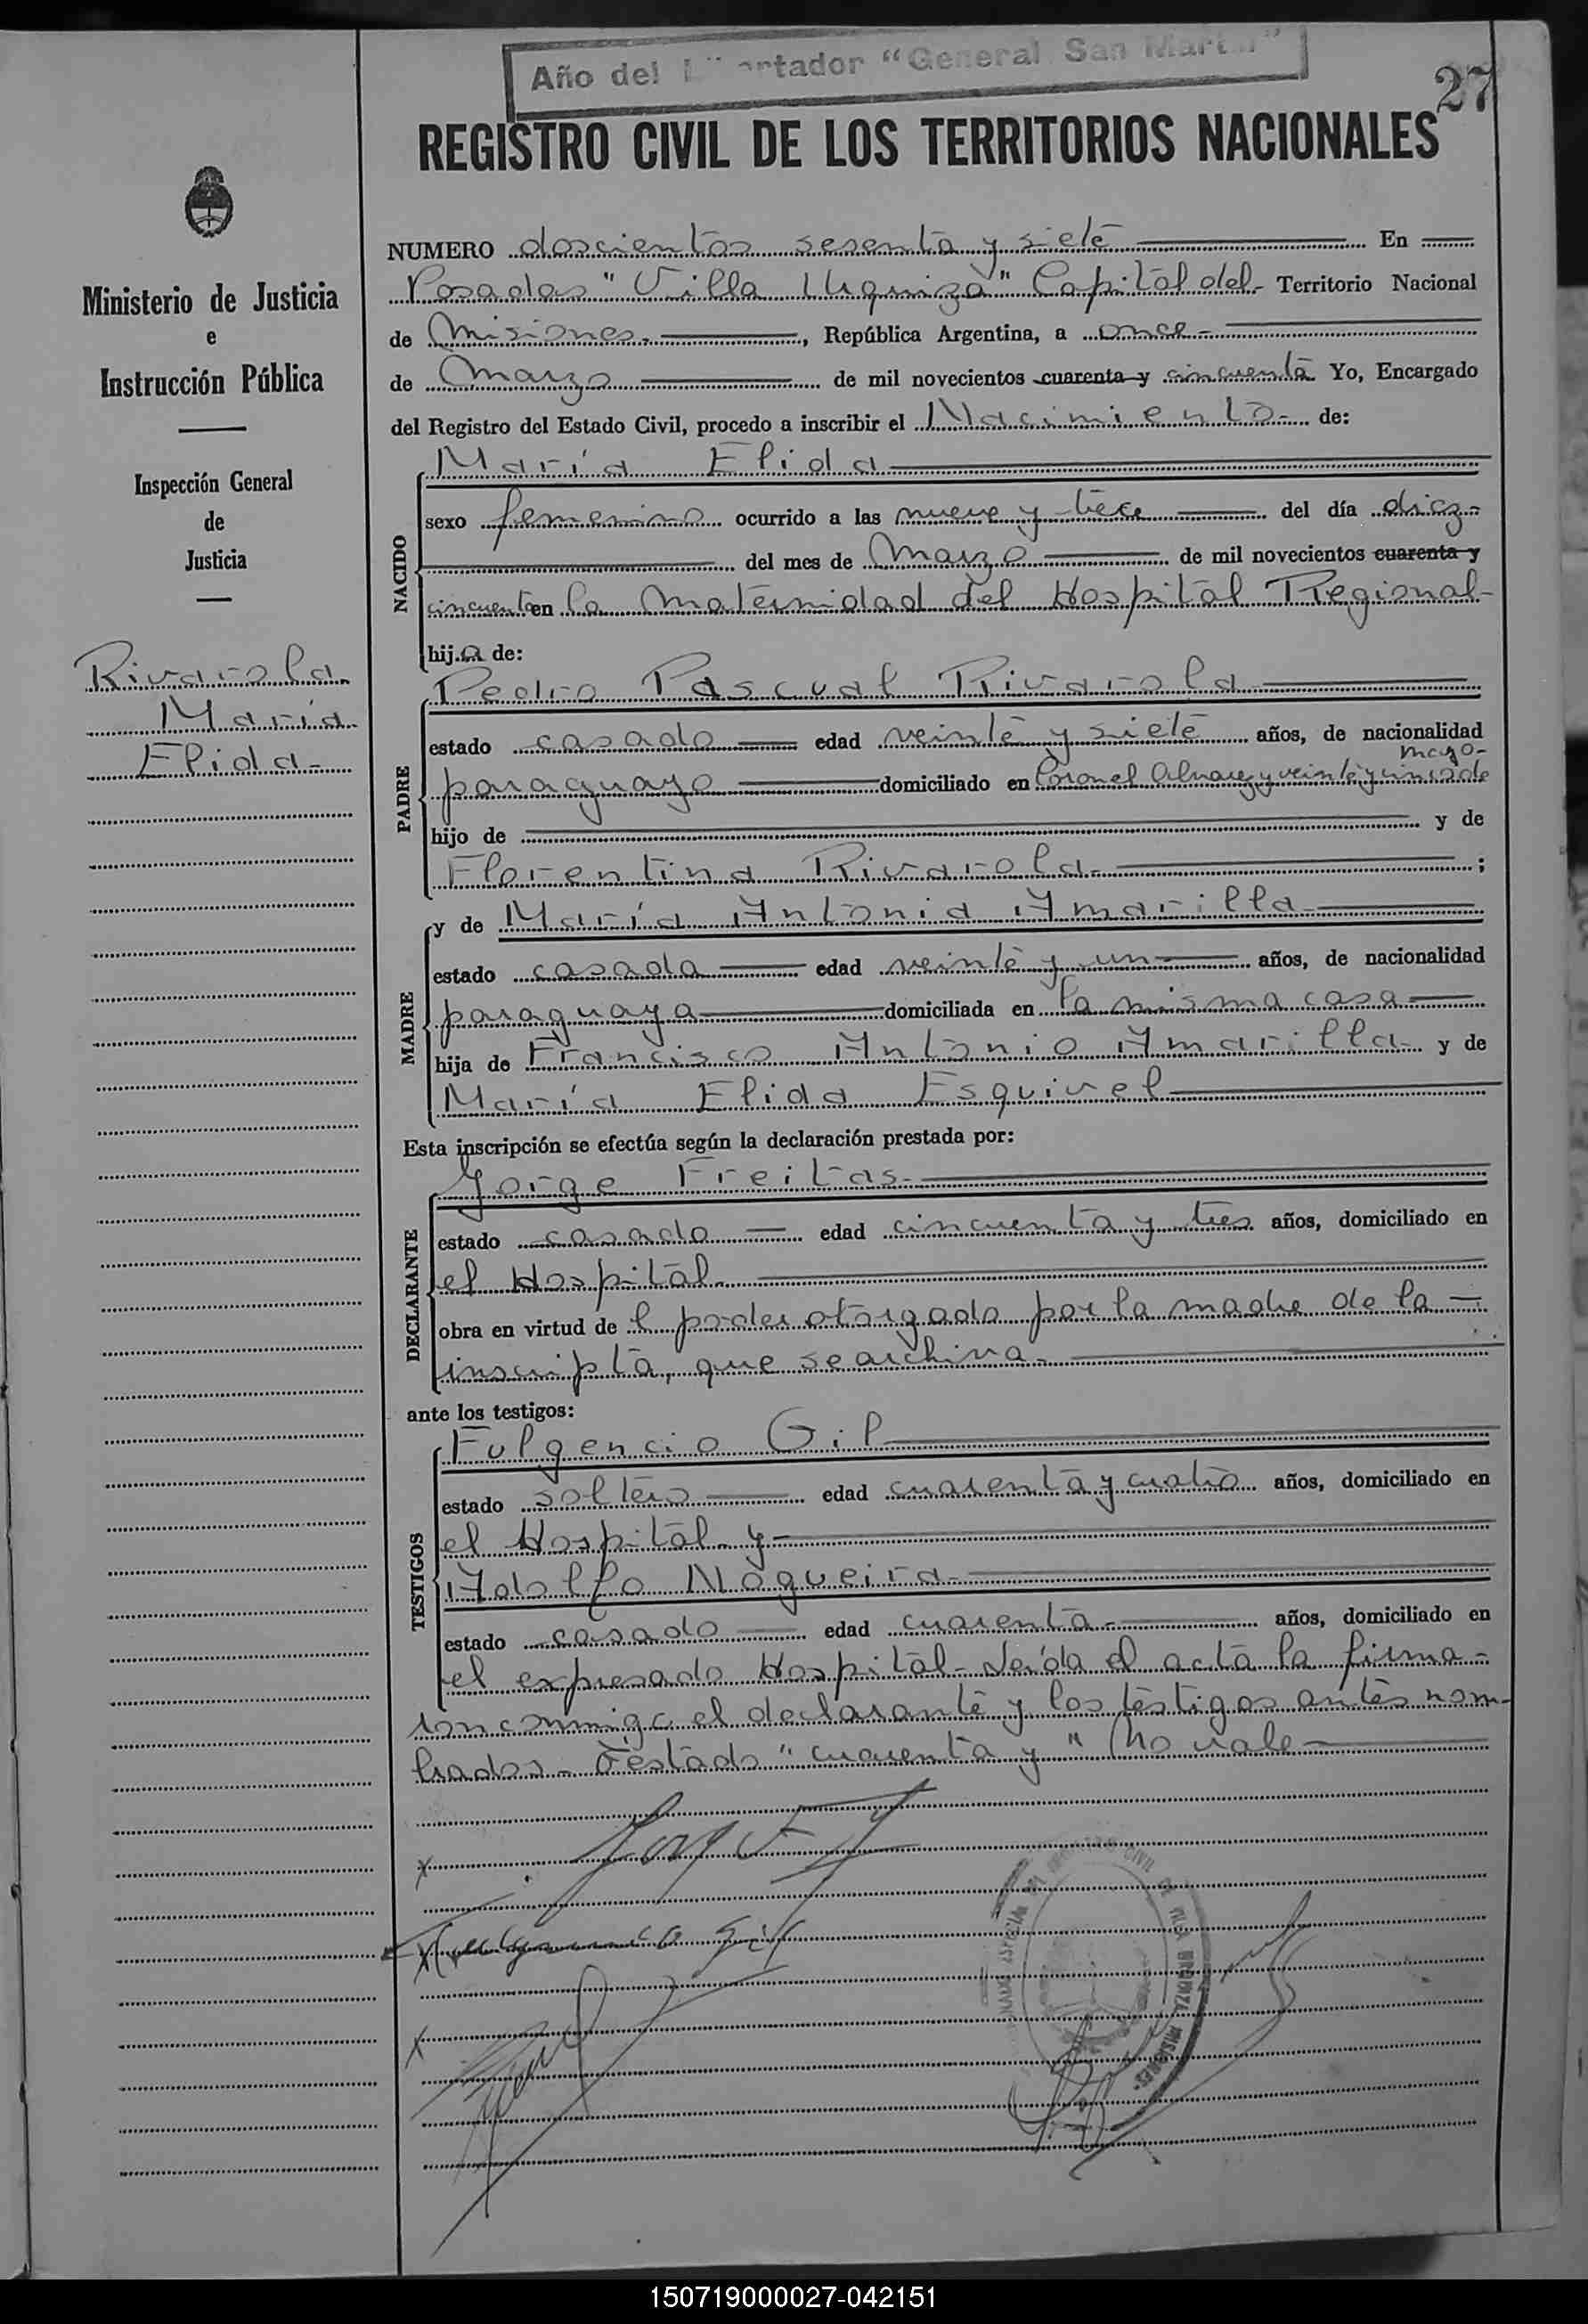 Año del Libertador "General San Martín"
27
REGISTRO CIVIL DE LOS TERRITORIOS NACIONALES
Ministerio de Justicia
e
Instrucción Pública
Inspección General
de
Justicia
Rivarola
María
Elida
NUMERO doscientos sesenta y siete En
Posadas "Villa Urquiza" Capital del Territorio Nacional
de Misiones, República Argentina, a once
de Marzo de mil novecientos cuarenta y cincuenta Yo, Encargado
del Registro del Estado Civil, procedo a inscribir el Nacimiento de:
NACIDO
María Elida
sexo femenino ocurrido a las nueve y trece del día diez
del mes de Marzo de mil novecientos cuarenta y
cincuenta en la Maternidad del Hospital Regional
hija de:
PADRE
Pedro Pascual Rivarola
estado casado edad veinte y siete años, de nacionalidad
paraguayo domiciliado en Coronel Alvarez y veinte y cinco de mayo
hijo de y de
Florentina Rivarola ;
MADRE
y de María Antonia Amarilla
estado casada edad veinte y un años, de nacionalidad
paraguaya domiciliada en la misma casa
hija de Francisco Antonio Amarilla y de
María Elida Esquivel
Esta inscripción se efectúa según la declaración prestada por:
DECLARANTE
Jorge Freitas
estado casado edad cincuenta y tres años, domiciliado en
el Hospital
obra en virtud del poder otorgado por la madre de la
inscripta, que se archiva.
ante los testigos:
TESTIGOS
Fulgencio Gil
estado soltero edad cuarenta y cuatro años, domiciliado en
el Hospital y
Adolfo Nogueira
estado casado edad cuarenta años, domiciliado en
el expresado Hospital. Leída el acta la firma-
ron conmigo el declarante y los testigos antes nom-
brados. Testado "cuarenta y" No vale
x
x Fulgencio Gil
x
CIVIL DE VILLA URQUIZA MISIONES
150719000027-042151